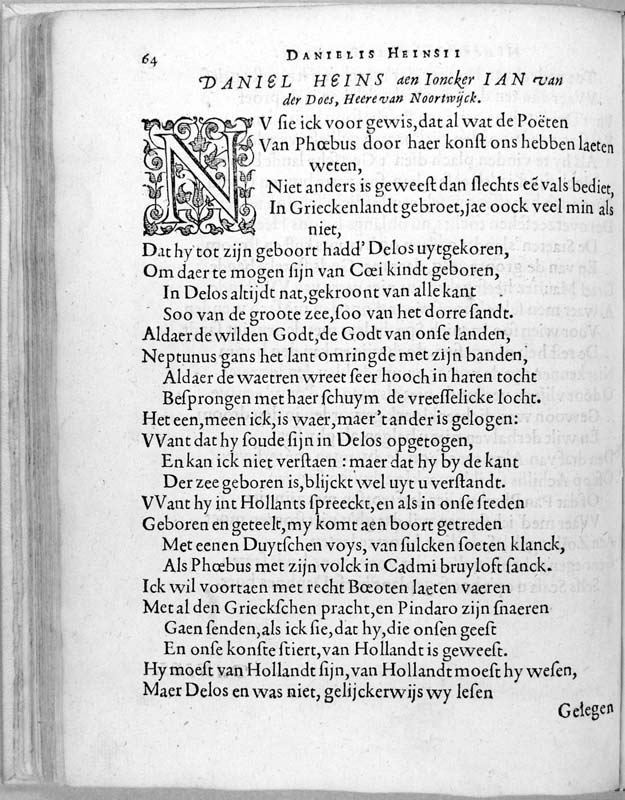 64
DANIELIS HEINSII
DANIEL HEINS aen Ioncker IAN van
der Does, Heere van Noortwijck.
NV ſie ick voor gewis, dat al wat de Poëten
Van Phœbus door haer konſt ons hebben laeten
weten,
Niet anders is geweeſt dan ſlechts eẽ vals bediet,
In Grieckenlandt gebroet, jae oock veel min als
niet,
Dat hy tot zijn geboort hadd' Delos uytgekoren,
Om daer te mogen ſijn van Cœi kindt geboren,
In Delos altijdt nat, gekroont van alle kant
Soo van de groote zee, ſoo van het dorre ſandt.
Aldaer de wilden Godt, de Godt van onſe landen,
Neptunus gans het lant omringde met zijn banden,
Aldaer de waetren wreet ſeer hooch in haren tocht
Beſprongen met haer ſchuym de vreeſſelicke locht.
Het een, meen ick, is waer, maer 't ander is gelogen:
VVant dat hy ſoude ſijn in Delos opgetogen,
En kan ick niet verſtaen : maer dat hy by de kant
Der zee geboren is, blijckt wel uyt u verſtandt.
VVant hy int Hollants ſpreeckt, en als in onſe ſteden
Geboren en geteelt, my komt aen boort getreden
Met eenen Duytſchen voys, van ſulcken ſoeten klanck,
Als Phœbus met zijn volck in Cadmi bruyloft ſanck.
Ick wil voortaen met recht Bœoten laeten vaeren
Met al den Grieckſchen pracht, en Pindaro zijn ſnaeren
Gaen ſenden, als ick ſie, dat hy, die onſen geeſt
En onſe konſte ſtiert, van Hollandt is geweeſt.
Hy moeſt van Hollandt ſijn, van Hollandt moeſt hy weſen,
Maer Delos en was niet, gelijckerwijs wy leſen
Gelegen